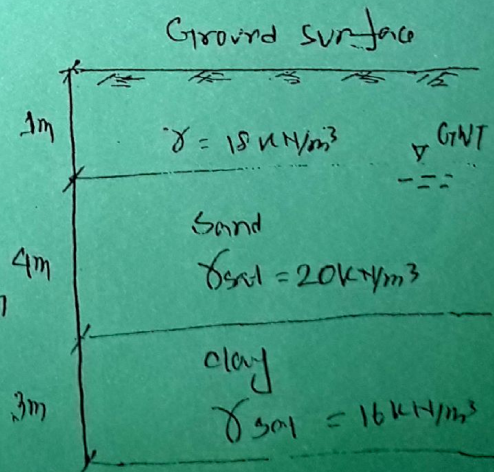 Ground surface
1m
γ = 18 KN/m³
GWT
Sand
4m
γsat = 20KN/m³
clay
3m
γsat = 16KN/m³